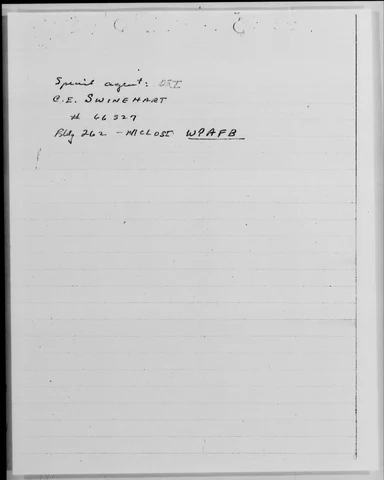 Special agent: OSI
C.E. SWINEHART
# 66327
Bldg 262 - WPAFB